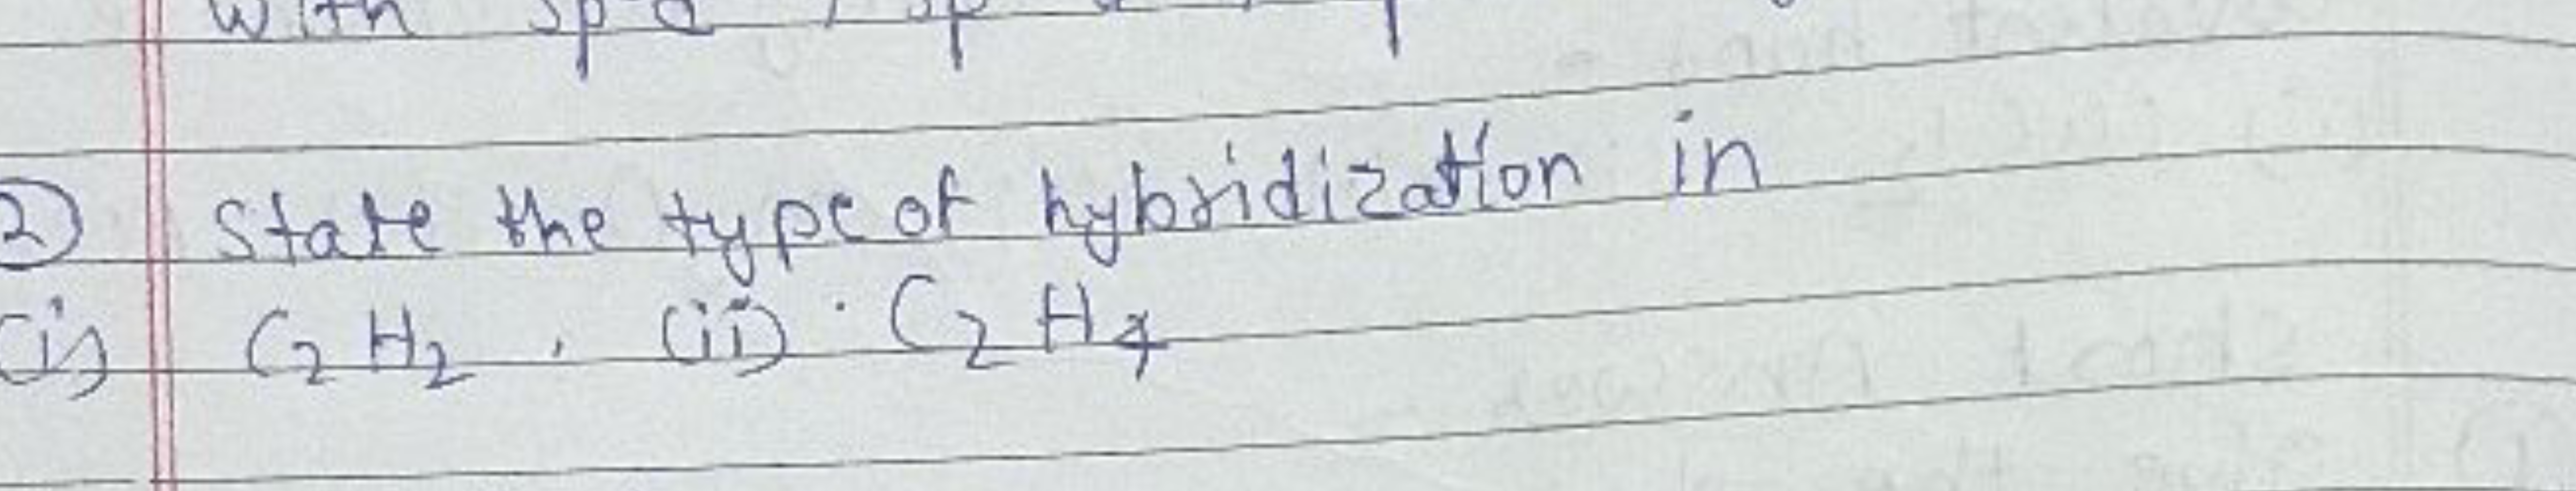 with sp
② State the type of hybridization in
(i) C₂H₂ , (ii) C₂H₄